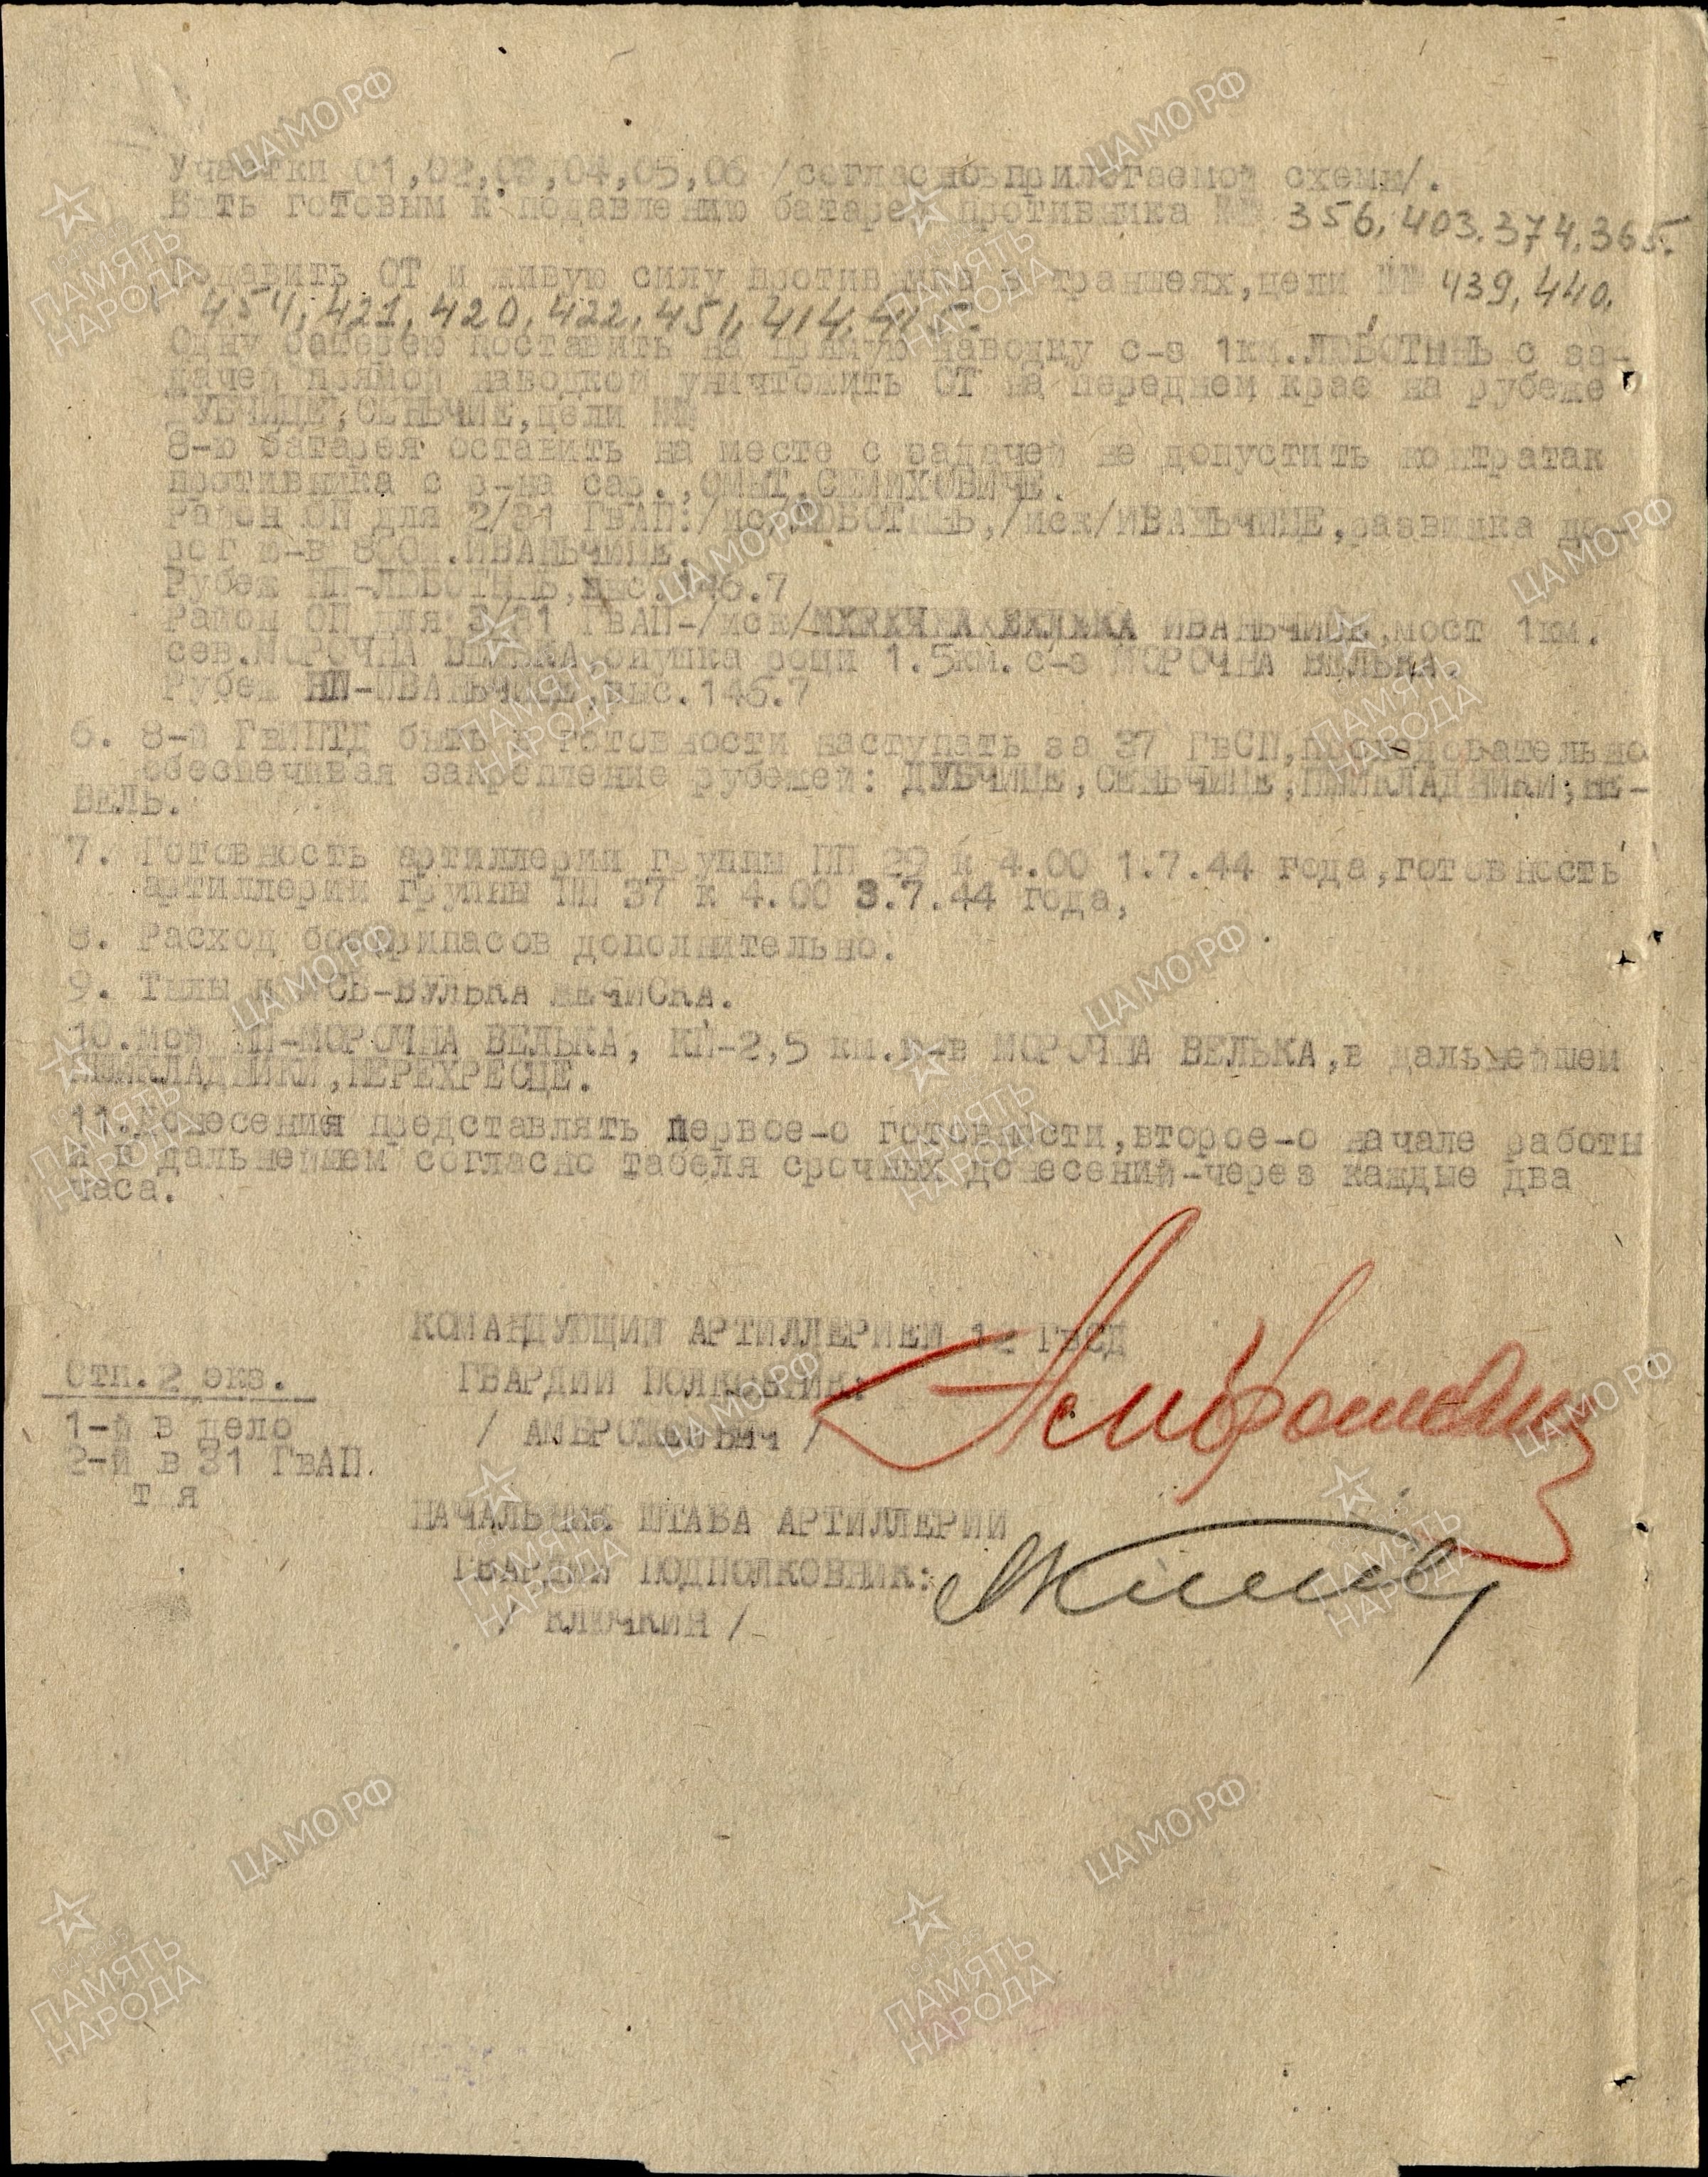 Участки 01,02,03,04,05,06 /согласно прилогаемой схемы/.
Быть готовым к подавлению батарей противника №№ 356, 403. 374. 365.
Подавить ОТ и живую силу противника в траншеях,цели №№ 439, 440,
454, 421, 420, 422, 451, 414,
Одну батарею поставить на прямую наводку с-з 1км.ЛЮБОТЫНЬ с за-
дачей прямой наводкой уничтожить ОТ на переднем крае на рубеже
ДУБЧИЦЕ,СЕНЬЧИЕ,цели №№
8-ю батарея оставить на месте с задачей не допустить контратак
противника с р-на сар.,ОМЫТ,СЕМИХОВИЧЕ.
Район ОП для 2/31 ГвАП:/иск/ЛЮБОТЫНЬ,/иск/ИВАНЬЧИЦЕ,развилка до-
рог ю-в 800м.ИВАНЬЧИЦЕ.
Рубеж НП-ЛЮБОТЫНЬ,выс.146.7
Район ОП для 3/31 ГвАП-/иск/ ИВАНЬЧИЦЕ,мост 1км.
сев.МОРОЧНА ВЕЛЬКА,опушка рощи 1.5км.с-з МОРОЧНА ВЕЛЬКА.
Рубеж НП-ИВАНЬЧИЦЕ,выс.146.7
6. 8-й ГвИПТД быть в готовности наступать за 37 ГвСП,последовательно
обеспечивая закрепление рубежей: ДУБЧИЦЕ,СЕНЬЧИЦЕ,ПШИКЛАДНИКИ,НЕ-
ВЕЛЬ.
7. Готовность артиллерии группы ПП 29 к 4.00 1.7.44 года,готовность
артиллерии группы ПП 37 к 4.00 3.7.44 года,
8. Расход боеприпасов дополнительно.
9. Тылы ПСБ-ВУЛЬКА
10.мой НП-МОРОЧНА ВЕЛЬКА, КП-2,5 км.ю-в МОРОЧНА ВЕЛЬКА,в дальнейшем
ПШИКЛАДНИКИ,ПЕРЕХРЕСЦЕ.
11.Донесения представлять первое-о готовности,второе-о начале работы
и в дальнейшем согласно табеля срочных донесений-через каждые два
часа.
КОМАНДУЮЩИЙ АРТИЛЛЕРИЕЙ 12 ГвСД
ГВАРДИИ ПОЛКОВНИК:
/ АМБРОЖЕВИЧ /
Отп.2 экз.
1-й в дело
2-й в 31 ГвАП.
т я
НАЧАЛЬНИК ШТАБА АРТИЛЛЕРИИ
ГВАРДИИ ПОДПОЛКОВНИК:
/ КЛЮЧКИН /
ЦАМО.РФ
ПАМЯТЬ
НАРОДА